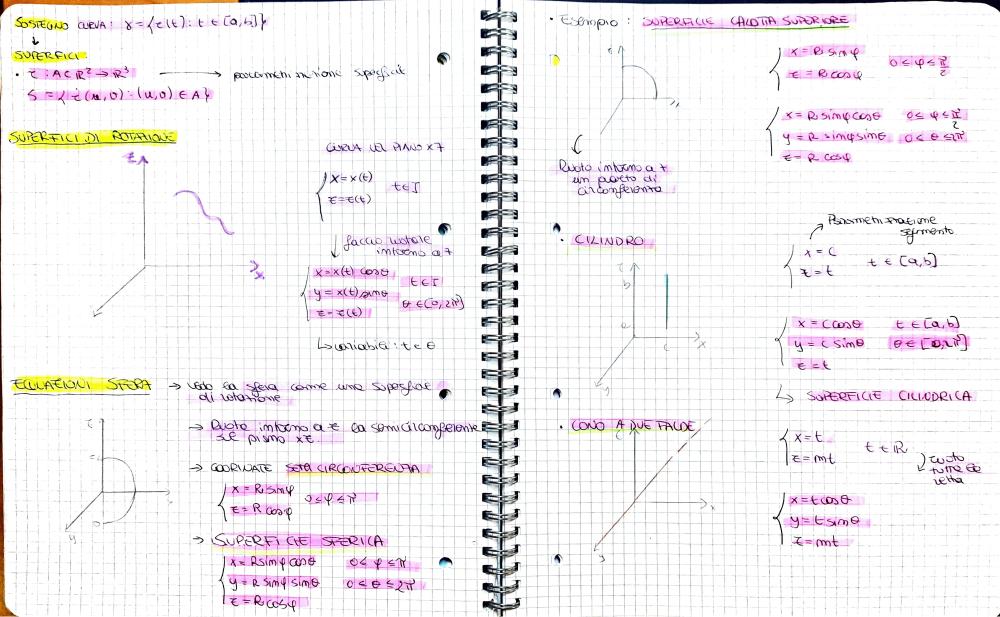 SOSTEGNO CURVA: γ = {τ(t): t ∈ [a,b]}
↓
SUPERFICI
• τ: A⊂R² → R³ → parametrizzazione superficie
S = {τ(u,v): (u,v) ∈ A}
SUPERFICI DI ROTAZIONE
z
x
CURVA NEL PIANO XZ
x = x(t)
t ∈ I
z = z(t)
↓ faccio ruotare
intorno a z
x = x(t) cosθ
t ∈ I
y = x(t) sinθ
θ ∈ [0, 2π]
z = z(t)
↳ variabili: t e θ
EQUAZIONI SFERA → Vedo la sfera come una superficie
di rotazione
z
y
→ Ruoto intorno a z la semicirconferenza
sul piano xz
→ COORDINATE SEMICIRCONFERENZA
x = R sinφ
0 ≤ φ ≤ π
z = R cosφ
→ SUPERFICIE SFERICA
x = R sinφ cosθ 0 ≤ φ ≤ π
y = R sinφ sinθ 0 ≤ θ ≤ 2π
z = R cosφ
• Esempio: SUPERFICIE CALOTTA SUPERIORE
z
x = R sinφ
0 ≤ φ ≤ π/2
z = R cosφ
x = R sinφ cosθ 0 ≤ φ ≤ π/2
y = R sinφ sinθ 0 ≤ θ ≤ 2π
z = R cosφ
Ruoto intorno a z
un quarto di
circonferenza
• CILINDRO
z
b
a
c
x
y
Parametrizzazione
segmento
x = c
t ∈ [a,b]
z = t
x = c cosθ t ∈ [a,b]
y = c sinθ θ ∈ [0,2π]
z = t
↳ SUPERFICIE CILINDRICA
• CONO A DUE FALDE
z
x
y
x = t
t ∈ R
z = mt
tutta la
retta
x = t cosθ
y = t sinθ
z = mt